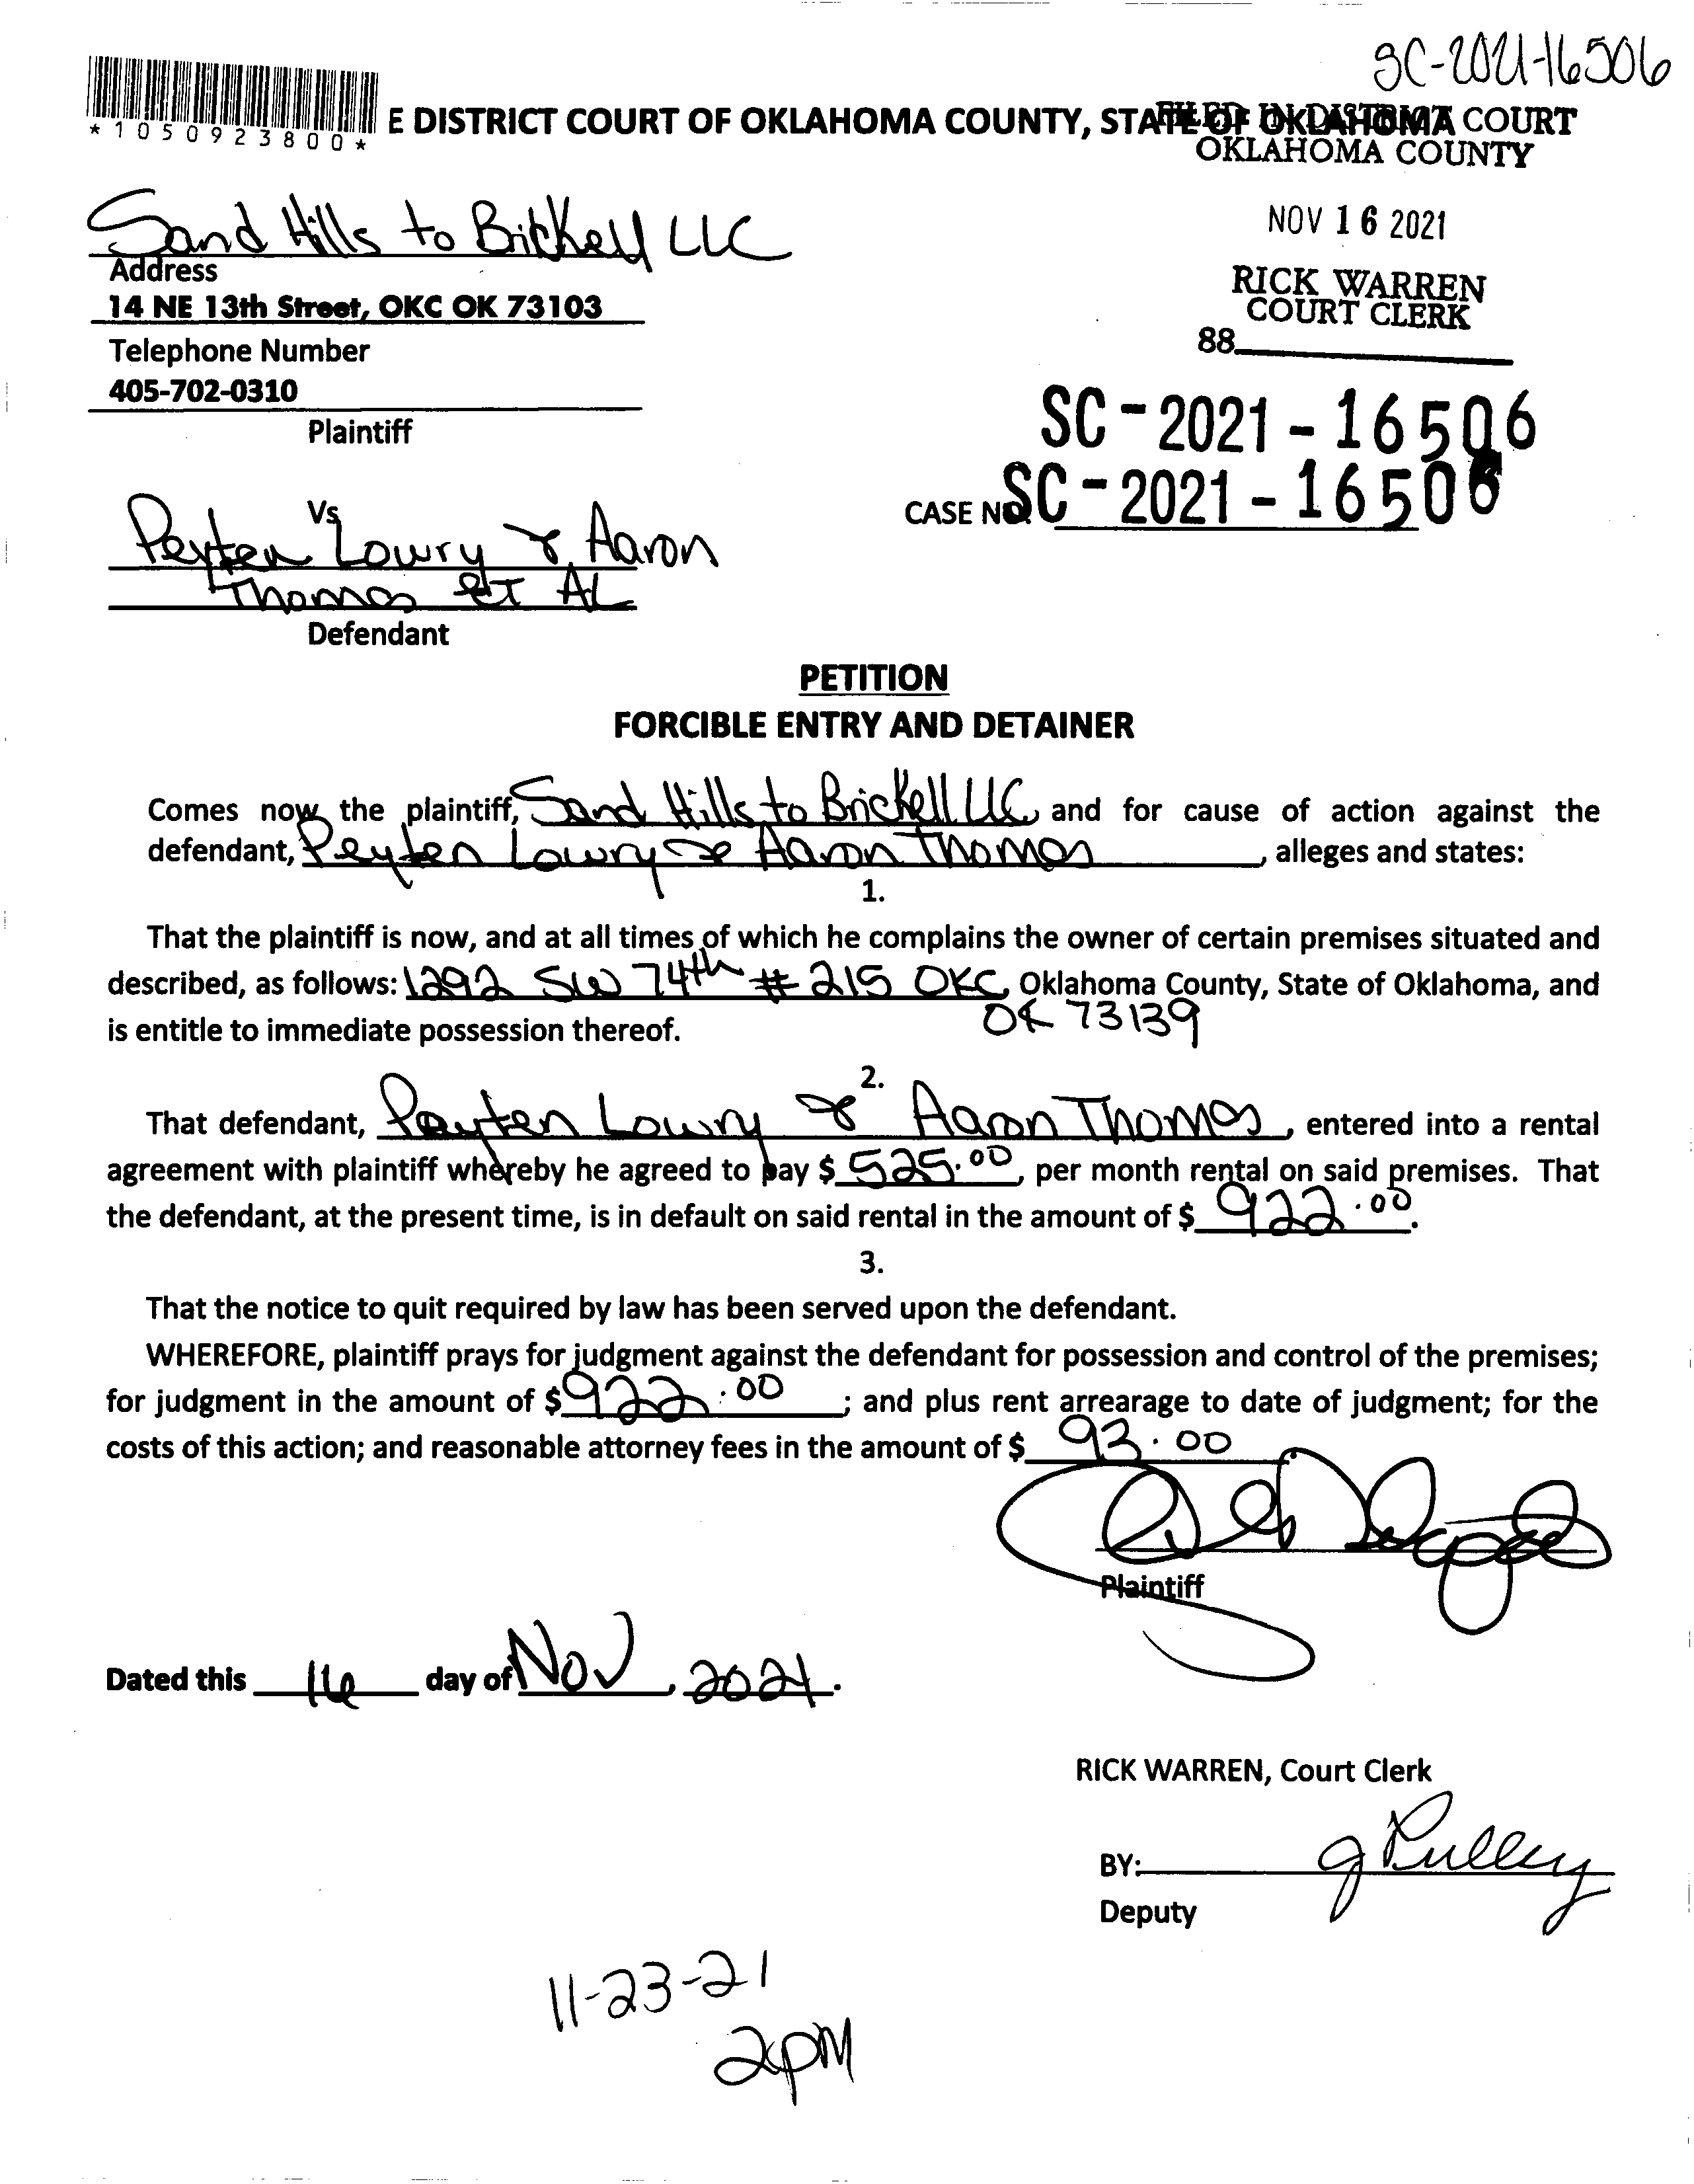 SC-2021-16506
*1050923800*
E DISTRICT COURT OF OKLAHOMA COUNTY, STATE OF OKLAHOMA
FILED IN DISTRICT COURT
OKLAHOMA COUNTY
NOV 16 2021
RICK WARREN
COURT CLERK
88
Sand Hills to Brickell LLC
Address
14 NE 13th Street, OKC OK 73103
Telephone Number
405-702-0310
Plaintiff
SC-2021-16506
CASE NO. SC-2021-16506
Vs
Peyten Lowry & Aaron
Thomas et AL
Defendant
PETITION
FORCIBLE ENTRY AND DETAINER
Comes now the plaintiff, Sand Hills to Brickell LLC, and for cause of action against the
defendant, Peyten Lowry & Aaron Thomas, alleges and states:
1.
That the plaintiff is now, and at all times of which he complains the owner of certain premises situated and
described, as follows: 1292 SW 74th # 215 OKC, Oklahoma County, State of Oklahoma, and
OK 73139
is entitle to immediate possession thereof.
2.
That defendant, Peyten Lowry & Aaron Thomas, entered into a rental
agreement with plaintiff whereby he agreed to pay $ 525.00, per month rental on said premises. That
the defendant, at the present time, is in default on said rental in the amount of $ 922.00.
3.
That the notice to quit required by law has been served upon the defendant.
WHEREFORE, plaintiff prays for judgment against the defendant for possession and control of the premises;
for judgment in the amount of $ 922.00; and plus rent arrearage to date of judgment; for the
costs of this action; and reasonable attorney fees in the amount of $ 93.00
Plaintiff
Dated this 16 day of Nov, 2021.
RICK WARREN, Court Clerk
BY: g Pulley
Deputy
11-23-21
2pM